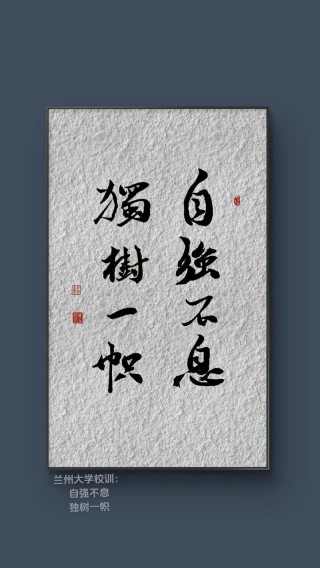 自強不息
獨樹一幟
兰州大学校训：
自强不息
独树一帜